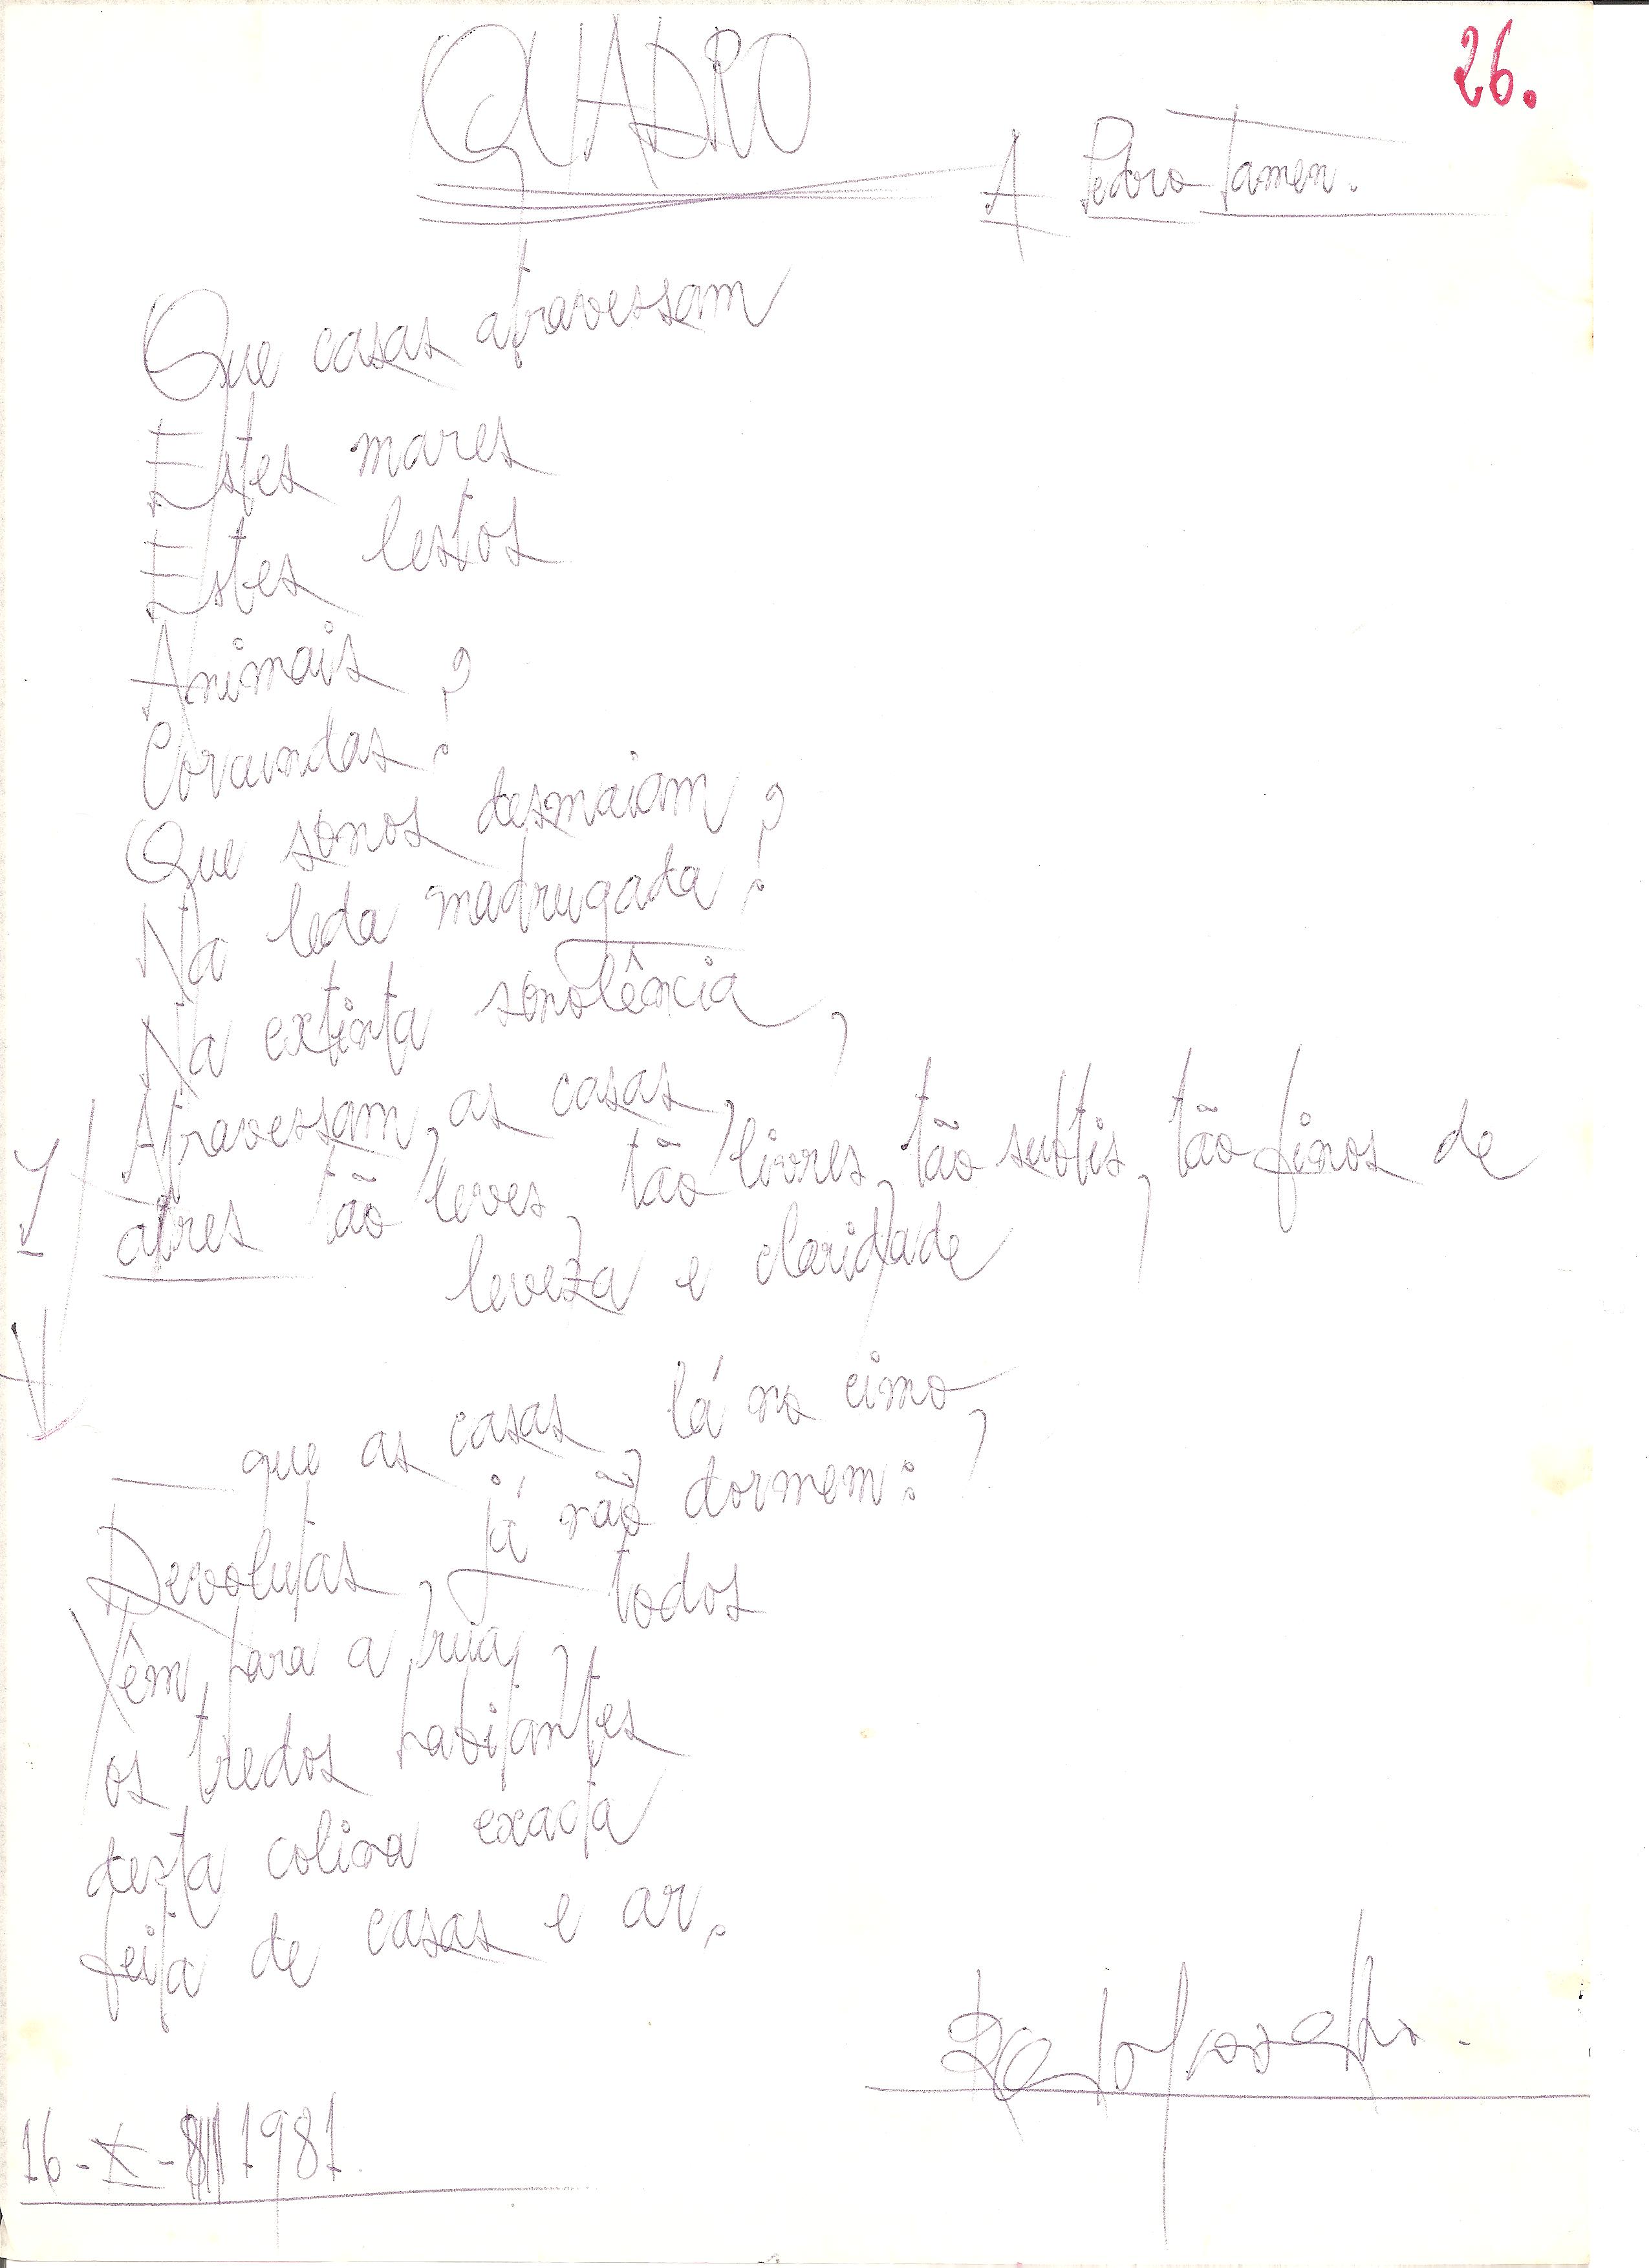 26.
QUADRO
A Pedro Tamen.
Que casas atravessam
Estes mares
Estes lestos
Animais
Corcundas?
Que sonos desmaiam
Na leda madrugada?
Na extinta sonolência,
Atravessam, as casas,
ares tão leves, tão livres, tão subtis, tão finos de
leveza e claridade
— que as casas, lá no cimo,
Devolutas, já não dormem:
Vêm para a rua, todos
os tredos habitantes
desta colina exacta
feita de casas e ar.
16-X-1981.